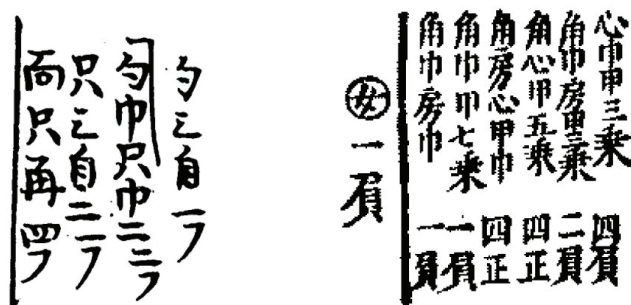 心巾甲三乗 四負
角巾房甲三乗 二負
角心甲五乗 四正
角房心甲巾 四正
角巾甲七乗 一負
角巾房巾 一負
㊛ 一負
勺云自 一フ
勺巾只巾二 二フ
只云自二 一フ
只再 四フ